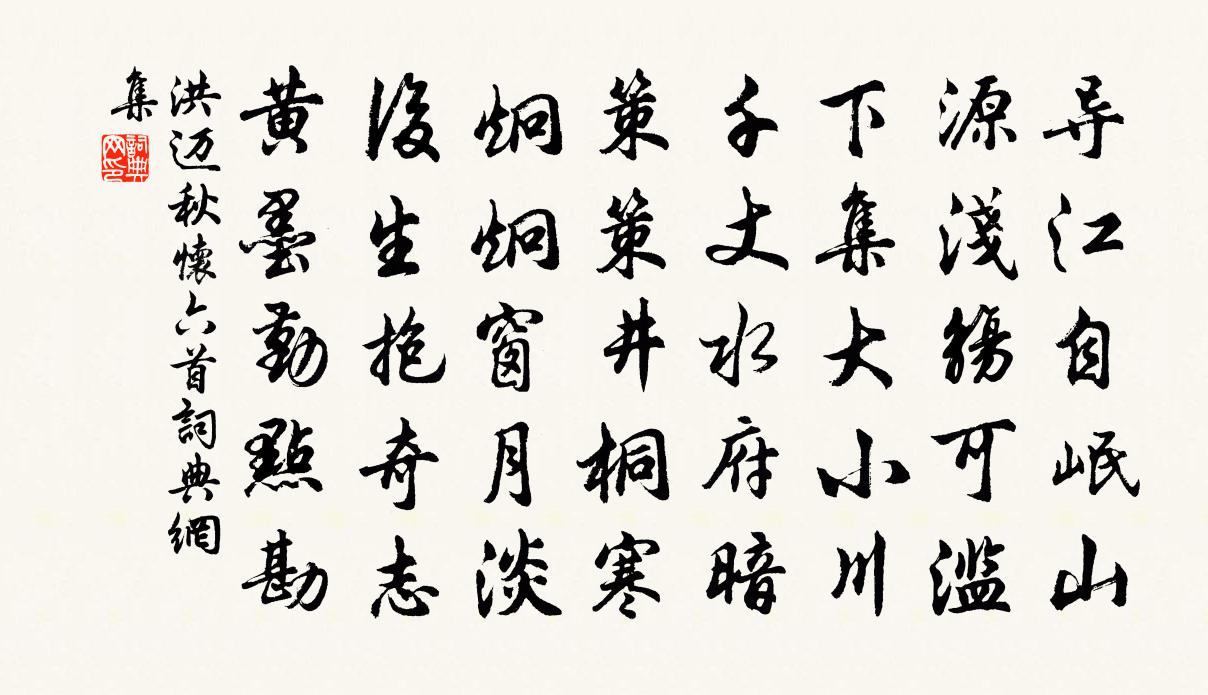 导江自岷山
源淺觴可濫
下集大小川
千丈水府暗
策策井桐寒
炯炯窗月淡
後生抱奇志
黃墨勤點勘
洪迈秋懷六首詞典網
集
詞典
网印